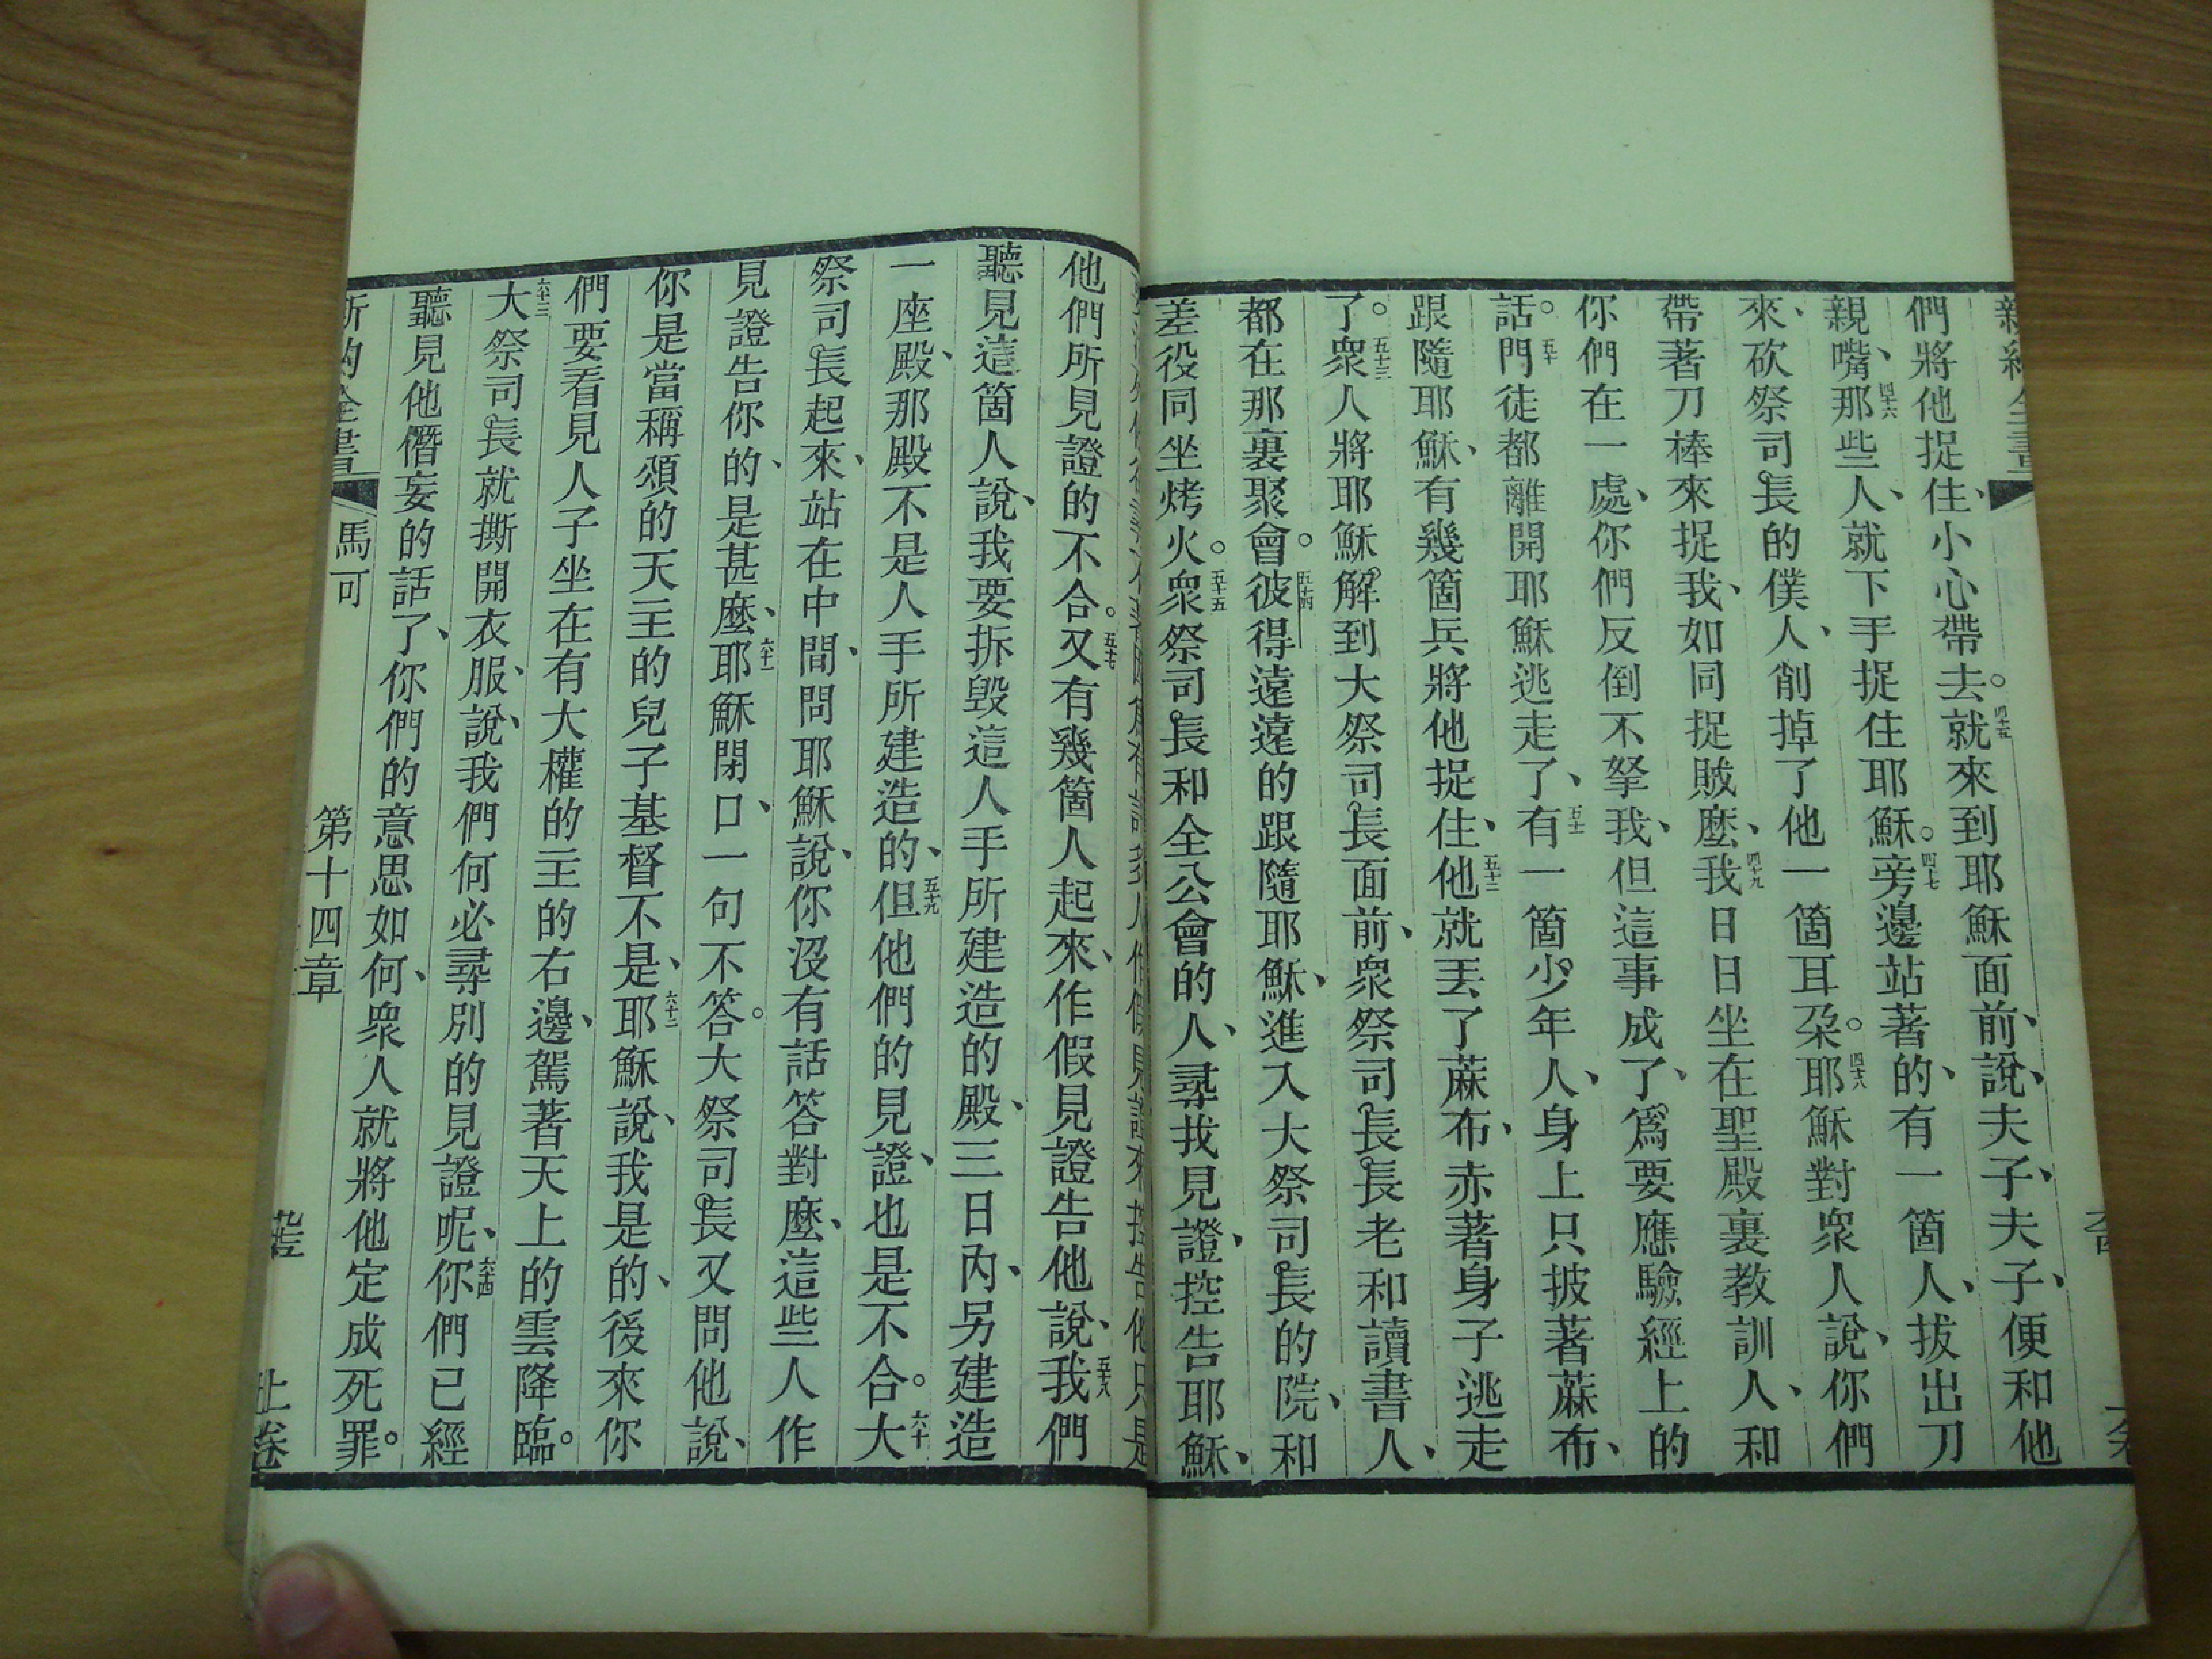 們將他捉住、小心帶去。四十五就來到耶穌面前、說、夫子、夫子、便和他
親嘴、四十六那些人、就下手捉住耶穌。四十七旁邊站著的、有一箇人、拔出刀
來、砍祭司長的僕人、削掉了他一箇耳朶。四十八耶穌對衆人說、你們
帶著刀棒來捉我、如同捉賊麽、四十九我日日坐在聖殿裏教訓人、和
你們在一處、你們反倒不拏我、但這事成了、爲要應驗經上的
話。五十門徒都離開耶穌逃走了、五十一有一箇少年人、身上只披著蔴布、
跟隨耶穌、有幾箇兵將他捉住、五十二他就丟了蔴布、赤著身子逃走
了。五十三衆人將耶穌解到大祭司長面前、衆祭司長長老和讀書人、
都在那裏聚會。五十四彼得遠遠的跟隨耶穌、進入大祭司長的院、和
差役同坐烤火。五十五衆祭司長和全公會的人、尋找見證、控告耶穌、
他們所見證的不合。五十七又有幾箇人起來、作假見證告他說、五十八我們
聽見這箇人說、我要拆毀這人手所建造的殿、三日內、另建造
一座殿、那殿不是人手所建造的、五十九但他們的見證、也是不合。六十大
祭司長起來、站在中間、問耶穌說、你沒有話答對麽、這些人作
見證告你的、是甚麽、六十一耶穌閉口、一句不答。大祭司長又問他說、
你是當稱頌的天主的兒子基督不是、六十二耶穌說、我是的、後來你
們要看見人子坐在有大權的主的右邊、駕著天上的雲降臨。
六十三大祭司長就撕開衣服、說、我們何必尋別的見證呢、六十四你們已經
聽見他僭妄的話了、你們的意思如何、衆人就將他定成死罪。
馬可 第十四章 上卷